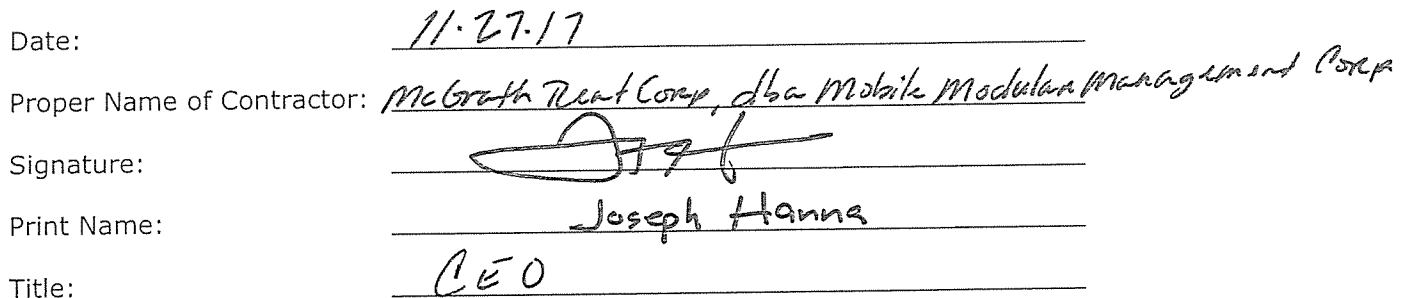 Date: 11.27.17
Proper Name of Contractor: McGrath Rent Corp, dba Mobile Modular Management Corp
Signature:
Print Name: Joseph Hanna
Title: CEO